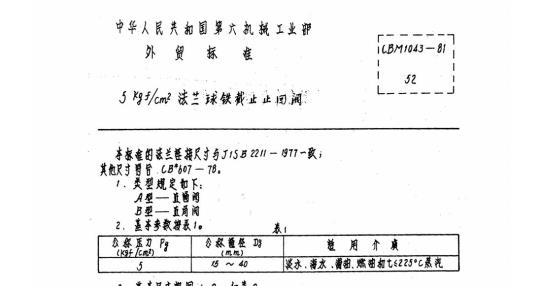 中华人民共和国第六机械工业部
外贸标准
CBM1043-81
52
5 kgf/cm² 法兰球铁截止止回阀
本标准的法兰连接尺寸与JISB 2211-1977一致；
其他尺寸符合 CB*607-78。
1. 类型规定如下：
A型——直通阀
B型——直角阀
2. 基本参数按表1。
表1
公称压力 Pg (kgf/cm²) 公称通径 Dg (mm) 适用介质
5 15～40 淡水、海水、滑油、燃油和t≤225°C蒸汽